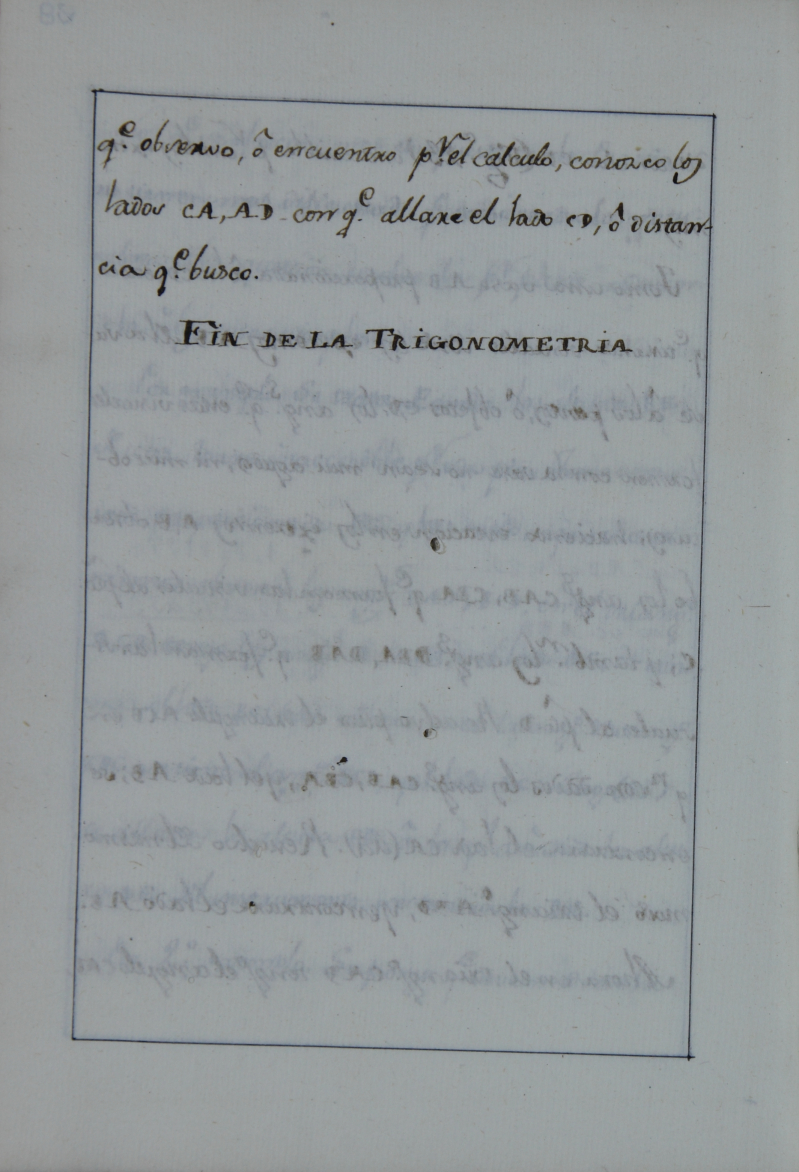 q.ᵉ observo, ô encuentro p.ʳ el calculo, conozco los
lados CA, AD con q.ᵉ allare el lado CD, ô distan-
cia q.ᵉ busco.
FIN DE LA TRIGONOMETRIA